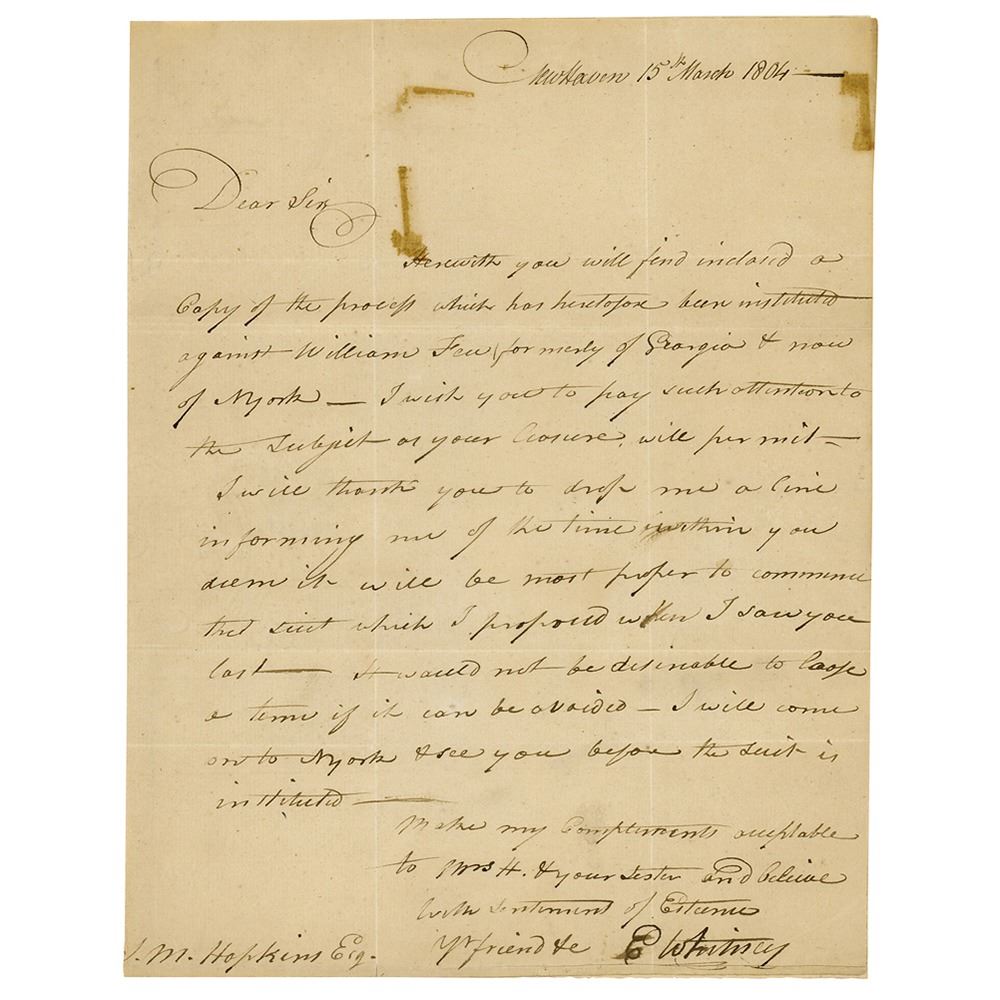 NewHaven 15th March 1804 —
Dear Sir
Herewith you will find inclosed a
Copy of the process which has heretofore been instituted
against William Few formerly of Georgia & now
of NYork — I wish you to pay such attention to
the Subject as your Leasure will permit —
I will thank you to drop me a line
informing me of the time within you
deem it will be most proper to commence
the suit which I proposed when I saw you
last — It would not be desireable to loose
a term if it can be avoided — I will come
on to NYork & see you before the suit is
instituted —
Make my Compliments acceptable
to Mrs H. & your Sister and believe
with sentiment of Esteeme
Yr friend &c E Whitney
J. M. Hopkins Esq.